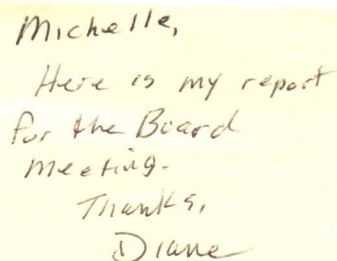 Michelle,
Here is my report
for the Board
Meeting.
Thanks,
Diane